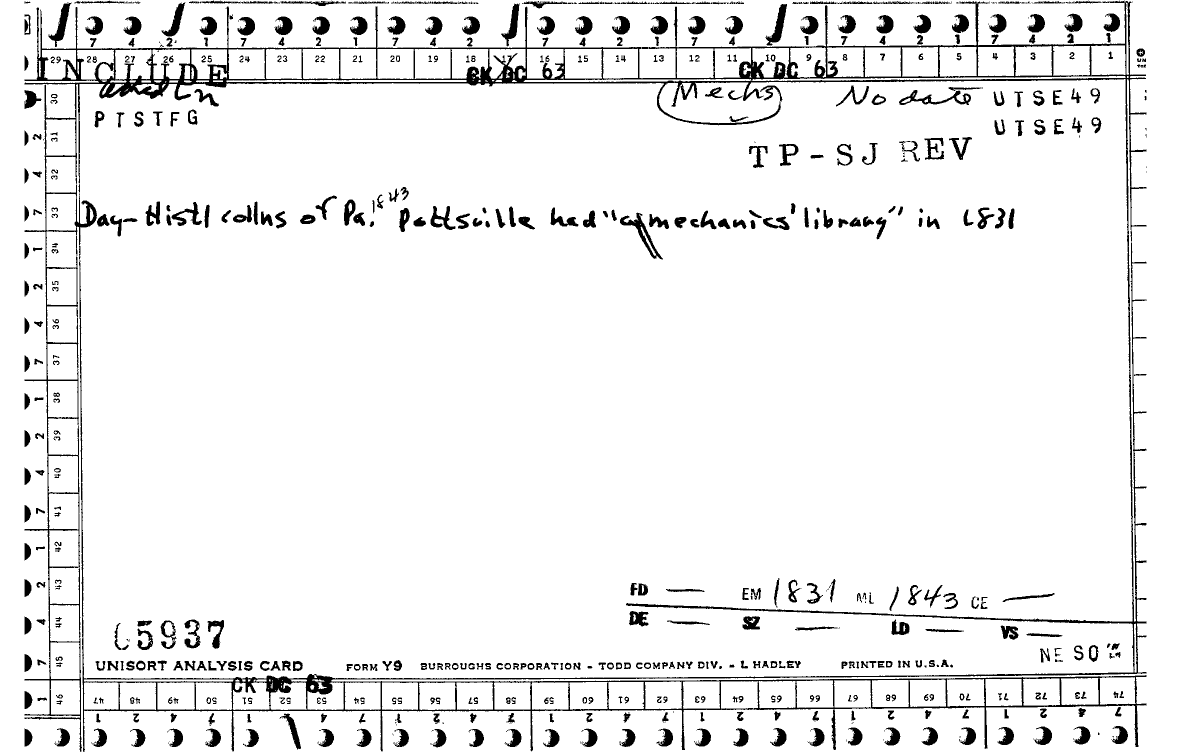 7 4 2 1 7 4 2 1 7 4 2 1 7 4 2 1 7 4 2 1 7 4 2 1 7 4 2 1
29 28 27 26 25 24 23 22 21 20 19 18 17 16 15 14 13 12 11 10 9 8 7 6 5 4 3 2 1
INCLUDE CK DC 63 CK DC 63
Mechs No date UTSE49
PTSTFG UTSE49
TP-SJ REV
Day-Histl collns of Pa. 1843 Pottsville had "a mechanics' library" in 1831
1 30
2 31
4 32
7 33
1 34
2 35
4 36
7 37
1 38
2 39
4 40
7 41
1 42
2 43
4 44
7 45
1 46
FD — EM 1831 ML 1843 CE —
DE — SZ — LD — VS —
05937 NE SO
UNISORT ANALYSIS CARD FORM Y9 BURROUGHS CORPORATION - TODD COMPANY DIV. - L HADLEY PRINTED IN U.S.A.
CK DC 63
47 48 49 50 51 52 53 54 55 56 57 58 59 60 61 62 63 64 65 66 67 68 69 70 71 72 73 74
1 2 4 7 1 2 4 7 1 2 4 7 1 2 4 7 1 2 4 7 1 2 4 7 1 2 4 7